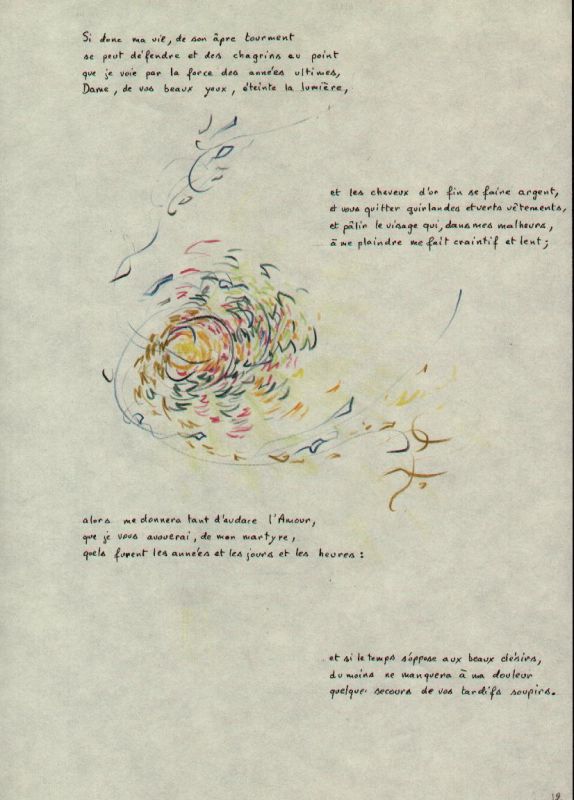 Si donc ma vie, de son âpre tourment
se peut défendre et des chagrins au point
que je voie par la force des années ultimes,
Dame, de vos beaux yeux, éteinte la lumière,
et les cheveux d'or fin se faire argent,
et vous quitter guirlandes et verts vêtements,
et pâlir le visage qui, dans mes malheurs,
à me plaindre me fait craintif et lent;
alors me donnera tant d'audace l'Amour,
que je vous avouerai, de mon martyre,
quels furent les années et les jours et les heures:
et si le temps s'oppose aux beaux désirs,
du moins ne manquera à ma douleur
quelque secours de vos tardifs soupirs.